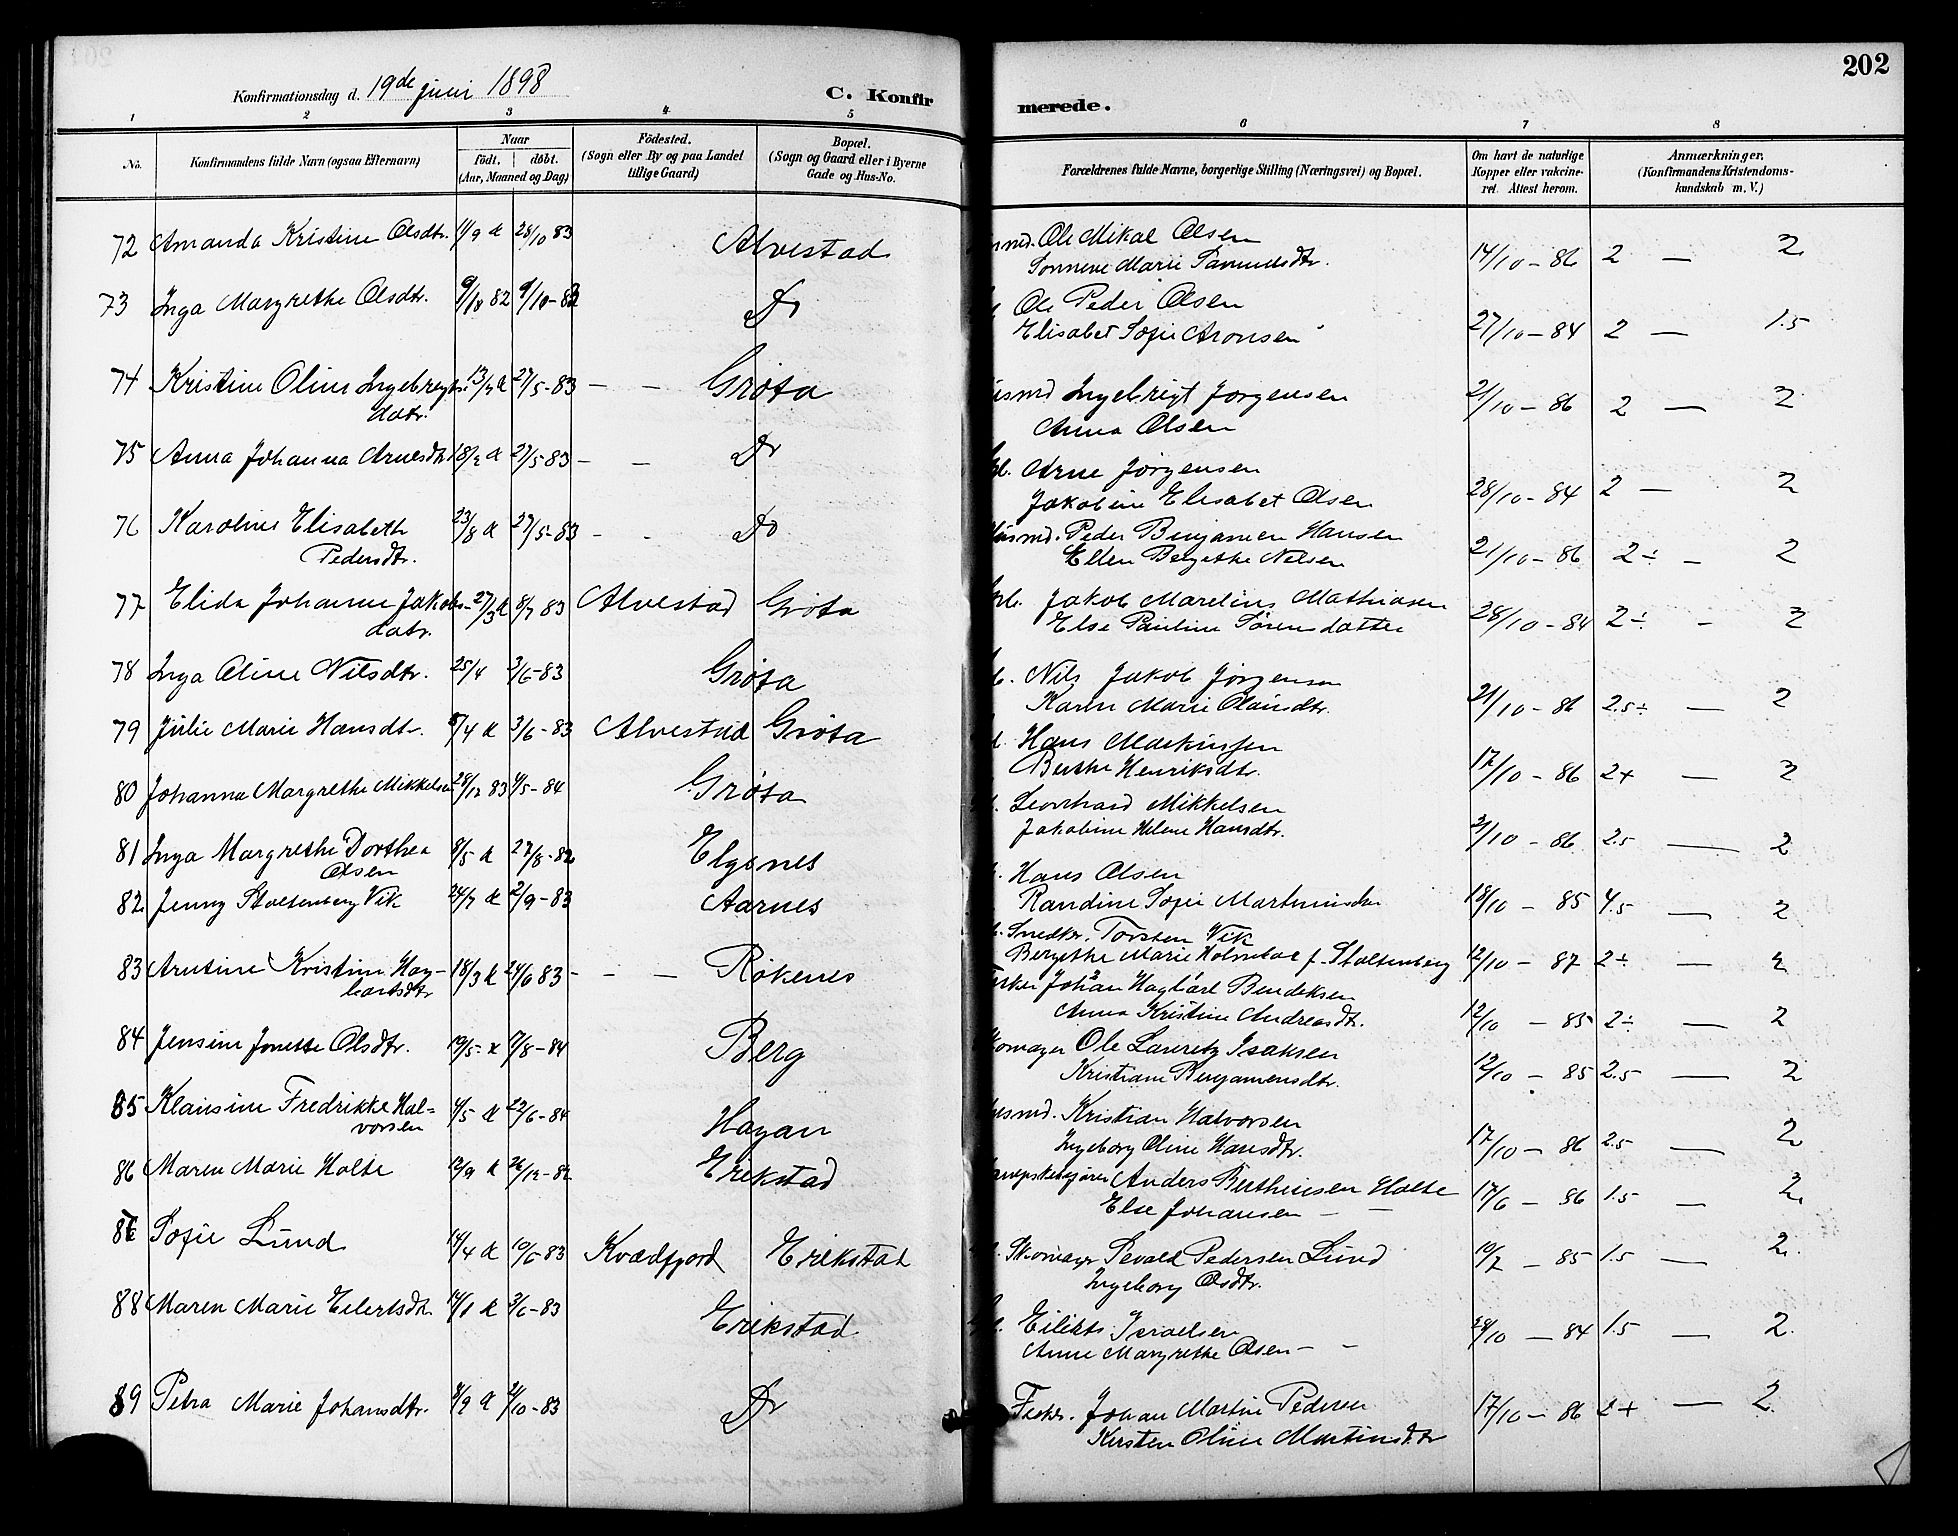 202
Konfirmationsdag d. 19de juni 1898
C. Konfir
merede.
1 2 3 4 5 6 7 8
No.
Konfirmandens fulde Navn (ogsaa Efternavn)
Naar
födt. döbt.
(Aar, Maaned og Dag)
Födested.
(Sogn eller By og paa Landet
tillige Gaard)
Bopæl.
(Sogn og Gaard eller i Byerne
Gade og Hus-No.
Forældrenes fulde Navne, borgerlige Stilling (Næringsvei) og Bopæl.
Om havt de naturlige
Kopper eller vakcine-
ret. Attest herom.
Anmærkninger.
(Konfirmandens Kristendoms-
kundskab m. V.)
72 Amanda Kristine Olsdtr. 28/10 83 Alvestad Ole Mikal Olsen 14/10-86 2 — 2
73 Inga Margrethe Olsdtr. 9/10-82 Do Ole Peder Olsen
Elisabet Sofie Aronsen 27/10-84 2 — 1.5
74 Kristine Oline Ingebregts- 27/5-83 — — Grøta Ingebrigt Jørgensen 21/10-86 2 — 2
datr. Anna Olsen
75 Anna Johanna Arnesdtr 27/5-83 — — Do Arne Jørgensen
Jakobine Elisabet Olsen 28/10-84 2 — 2
76 Karoline Elisabeth 23/8 27/5-83 - - Do Peder Benjamen Hansen
Pedersdtr. Ellen Bergethe Nelsen 21/10-86 2÷ — 2
77 Elida Johanne Jakobs- 27/3 8/7 83 Alvestad Grøta Jakob Marelius Mathiasen
datr. Else Pauline Sørensdatter 28/10-84 2÷ - 2
78 Inga Oline Nilsdtr. 25/4 3/6-83 Grøta Nils Jakob Jørgensen
Karen Marie Olausdtr. 21/10-86 2.5÷ — 2
79 Julie Marie Hansdtr. 3/6-83 Alvestad Grøta Hans
Berthe Henriksdtr. 17/10-86 2+ — 2
80 Johanna Margrethe Mikkelsen 28/12 83 4/5-84 Grøta Leonhard Mikkelsen
Jakobine Helene Hansdtr. 21/10-86 2.5 — 2
81 Inga Margrethe Dorthea 8/5 27/8-82 Elgsnes Hans Olsen
Olsen Randine Sofie 18/10-85 4.5 — 2
82 Jenny Stoltenberg Vik 24/7 2/9-83 Aarnes Snedkr. Torsten Vik
Bergethe Marie Holmboe f. Stoltenberg 12/10-87 2÷ — 2
83 Arntine Kristine Hag- 18/3 24/6 83 - - — Røkenes Johan Hagbart Bendiksen
bartsdtr Anna Kristine Andreasdtr. 12/10-85 2÷ — 2
84 Jensine Jonette Olsdtr. 19/5 17/8-84 Berg Ole Lauretz Isaksen
Kristiane Benjamensdtr. 12/10-85 2.5 — 2
85 Klausine Fredrikke Hal- 4/5 22/6-84 Hagan Kristian Halvorsen
vorsen Ingeborg Oline Hansdtr. 17/10-86 2.5 — 2
86 Maren Marie Holte 12/9 26/12-82 Erikstad Anders Berthinsen Holte
Else Johansen — — 17/6-86 1.5 — 2
87 Sofie Lund 14/4 10/6-83 Kvædfjord Erikstad Skomagr Sevald Pedersen Lund
Ingeborg Olsdtr. 19/7-85 1.5 — 2.
88 Maren Marie Eilertsdtr. 3/6-83 Erikstad Eilerts Israelsen
Anne Margrethe Olsen - - 28/10-84 1.5 — 2.
89 Petra Marie Johansdtr. 21/10-83 Do Johan Martin Pedersen 17/10-86 2+ — 2.
Kirsten Oline Martinsdtr